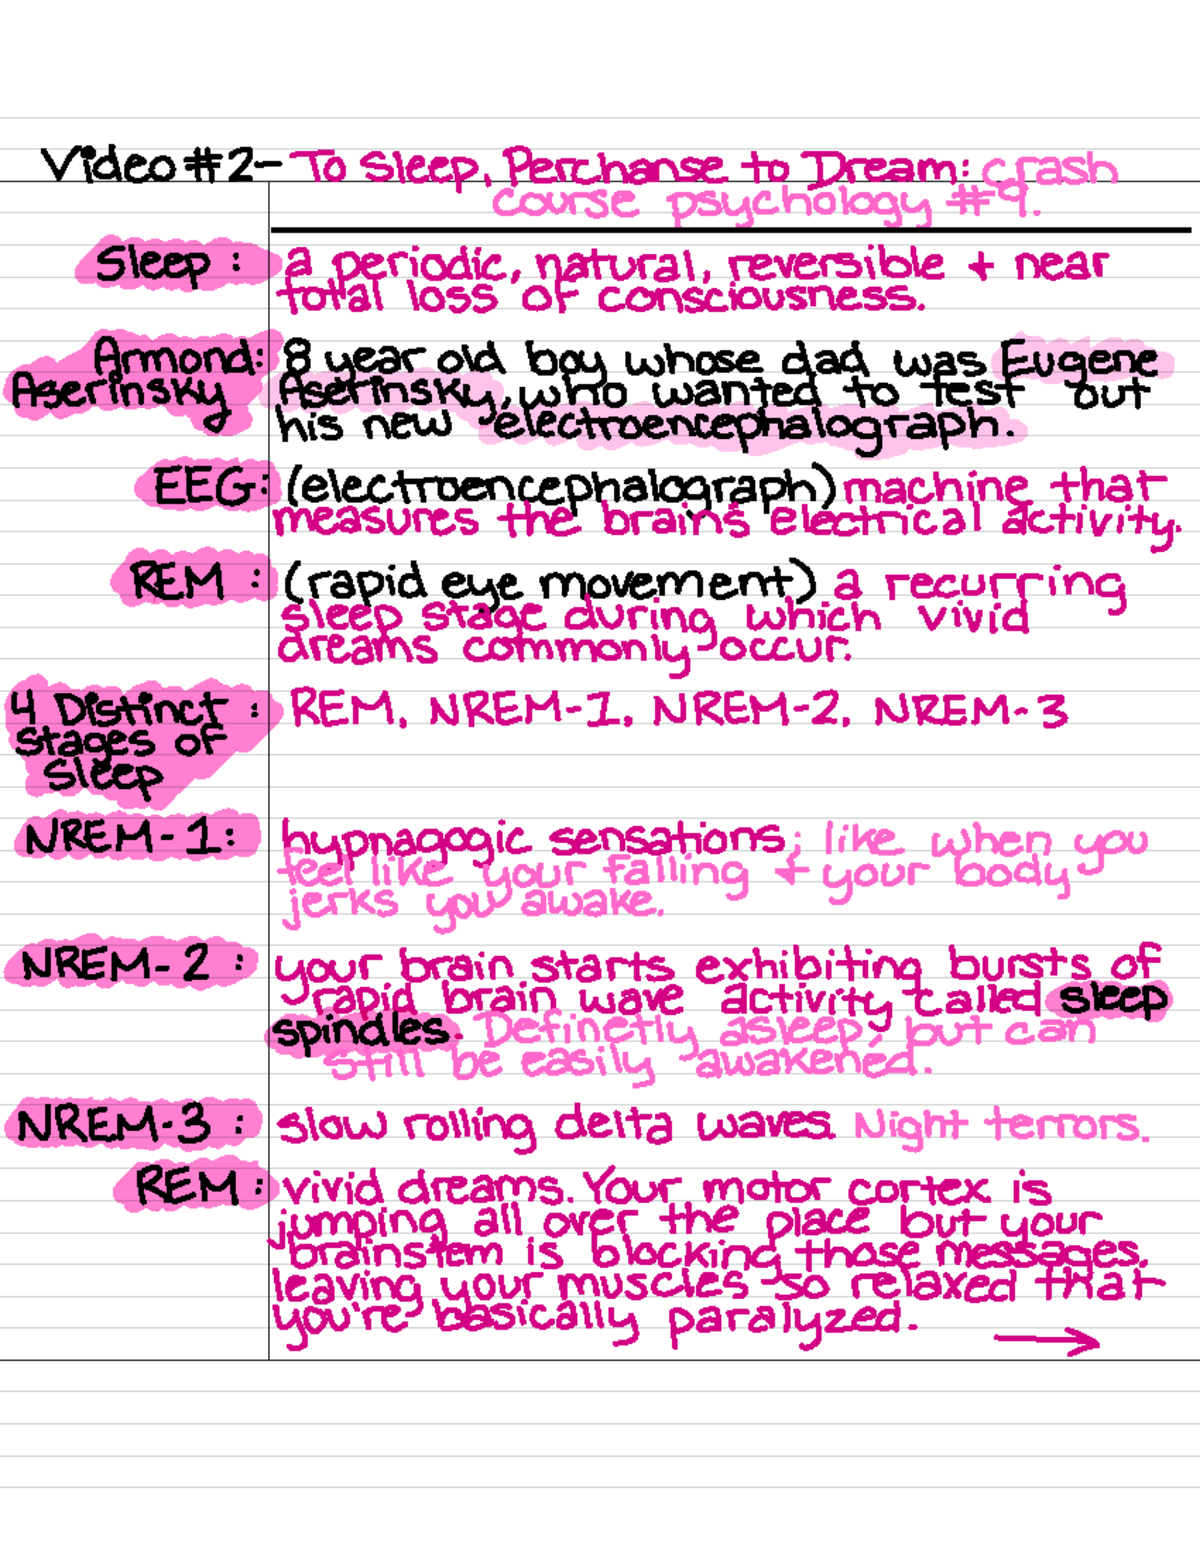 Video #2- To Sleep, Perchanse to Dream: crash
course psychology #9.
Sleep : a periodic, natural, reversible + near
total loss of consciousness.
Armond: 8 year old boy whose dad was Eugene
Aserinsky Aserinsky, who wanted to test out
his new electroencephalograph.
EEG: (electroencephalograph) machine that
measures the brain's electrical activity.
REM : (rapid eye movement) a recurring
sleep stage during which vivid
dreams commonly occur.
4 Distinct : REM, NREM-1, NREM-2, NREM-3
stages of
Sleep
NREM-1: hypnagogic sensations; like when you
feel like your falling + your body
jerks you awake.
NREM-2 : your brain starts exhibiting bursts of
rapid brain wave activity called sleep
spindles. Definetly asleep, but can
still be easily awakened.
NREM-3 : slow rolling delta waves. Night terrors.
REM: vivid dreams. Your motor cortex is
jumping all over the place but your
brainstem is blocking those messages,
leaving your muscles so relaxed that
you're basically paralyzed.